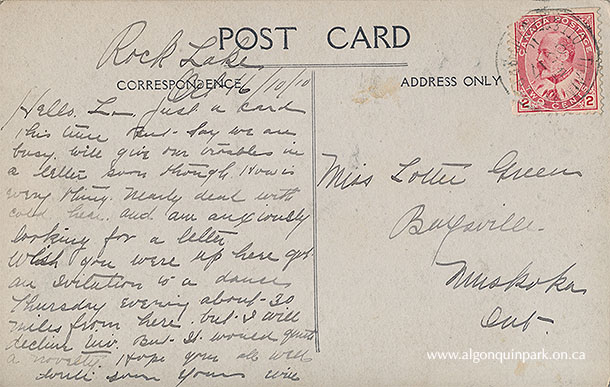 POST CARD
CORRESPONDENCE
ADDRESS ONLY
CANADA POSTAGE
2 CENTS 2
Rock Lake
6/10/10
Hello L_ Just a card
this time But- Say we are
busy. will give our troubles in
a letter soon though. How is
every thing. Nearly dead with
cold here. and am anxiously
looking for a letter
Wish you were up here got
an Invitation to a dance
Thursday evening about- 30
miles from here. but- I will
decline inv. But- It would quite
a novelty. Hope you are well
soon Yours
Miss Lottee Green
Baysville.
Muskoka
Ont.
www.algonquinpark.on.ca